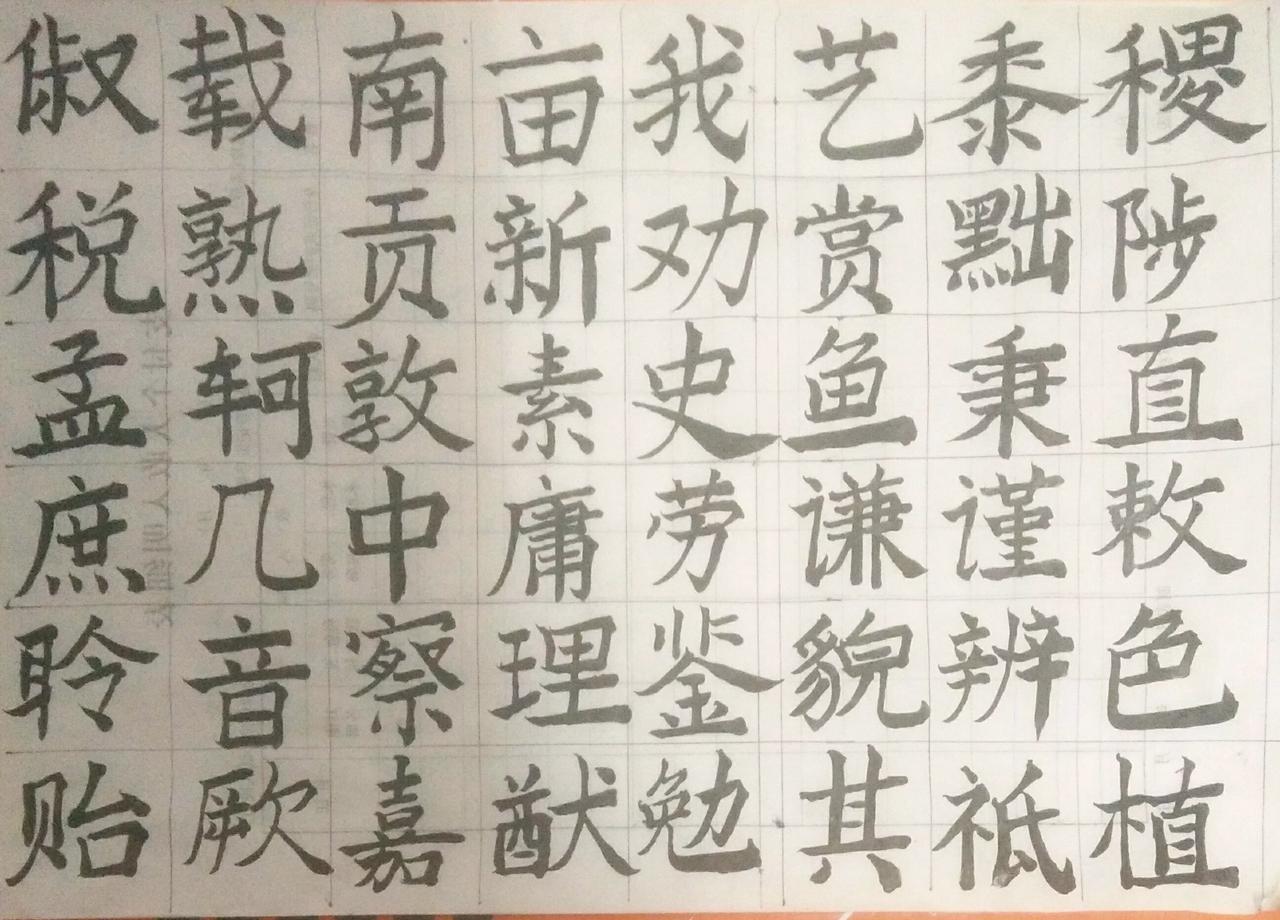 俶载南亩我艺黍稷
税熟贡新劝赏黜陟
孟轲敦素史鱼秉直
庶几中庸劳谦谨敕
聆音察理鉴貌辨色
贻厥嘉猷勉其祗植